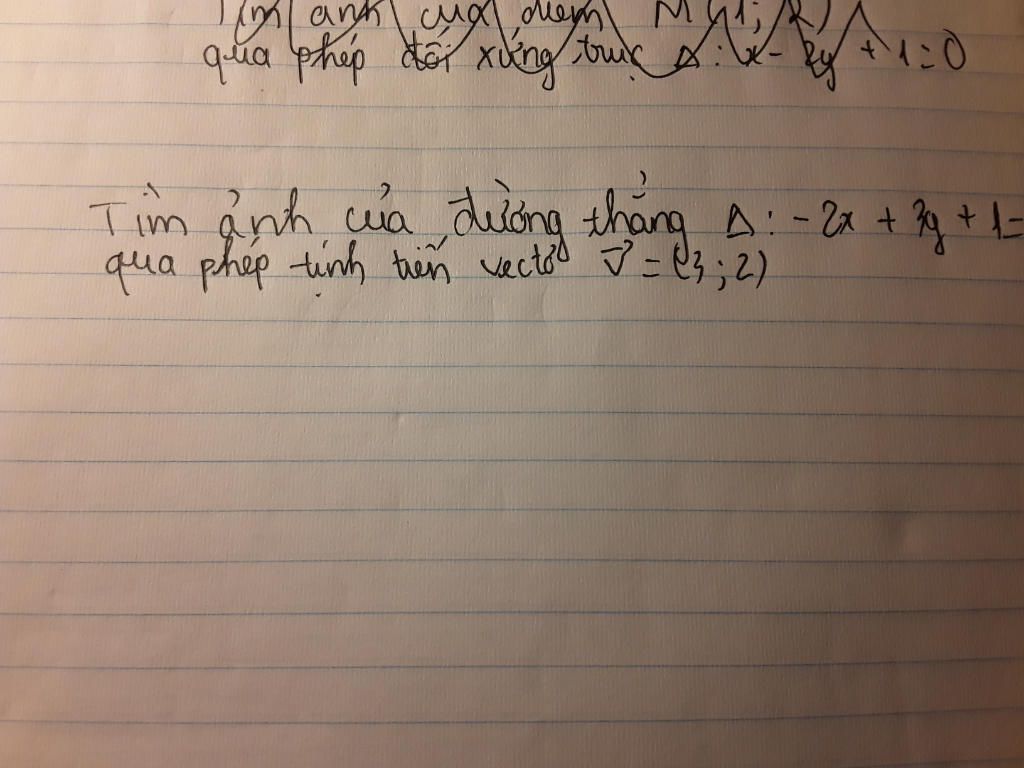 Tìm ảnh của điểm M (1; 2)
qua phép đối xứng trục Δ: x - 2y + 1 = 0
Tìm ảnh của đường thẳng Δ: - 2x + 3y + 1 =
qua phép tịnh tiến vectơ v = (3; 2)